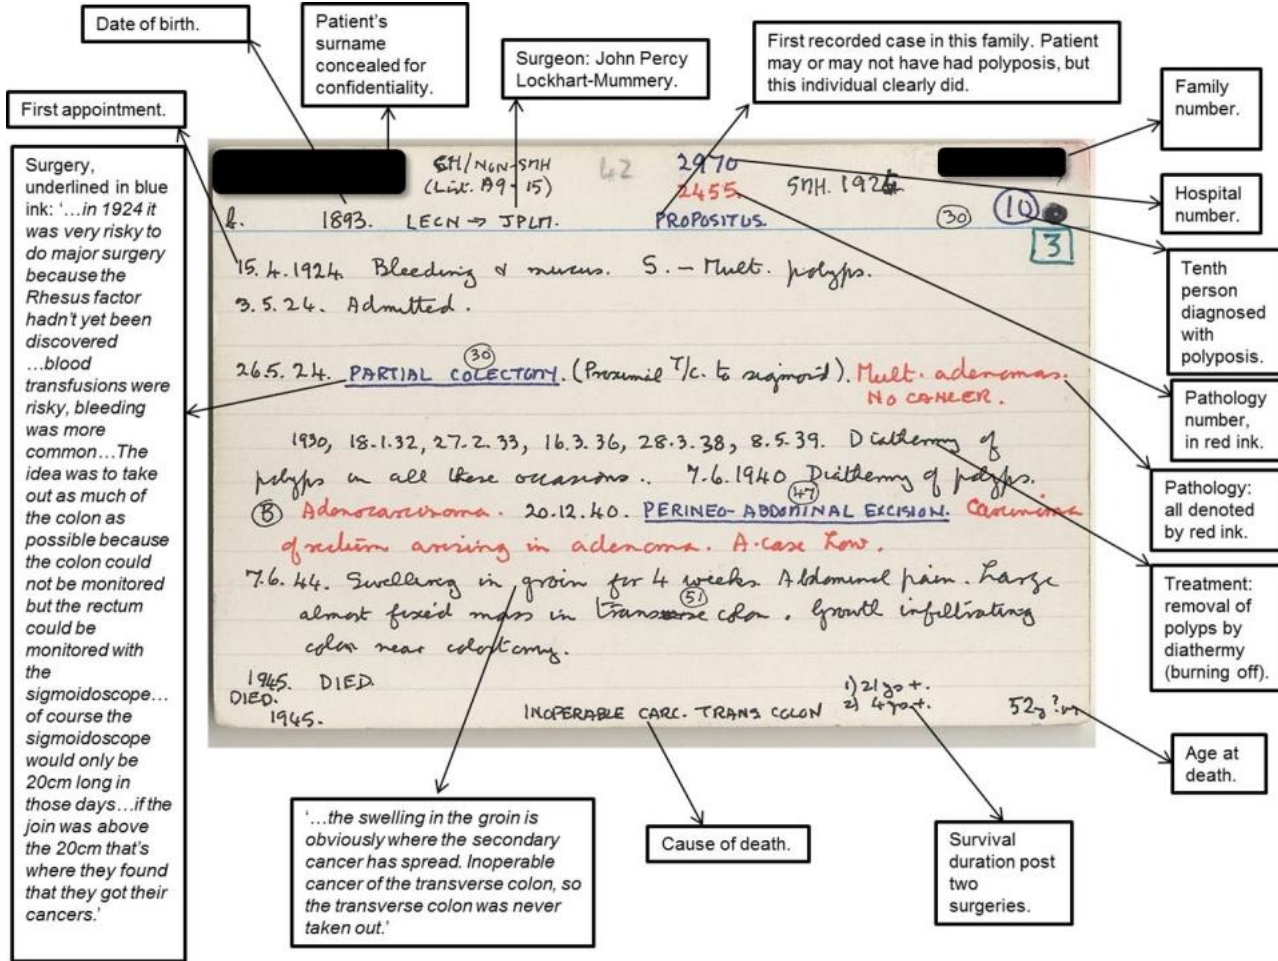 Date of birth.
Patient's
surname
concealed for
confidentiality.
Surgeon: John Percy
Lockhart-Mummery.
First recorded case in this family. Patient
may or may not have had polyposis, but
this individual clearly did.
Family
number.
First appointment.
Surgery,
underlined in blue
ink: ‘…in 1924 it
was very risky to
do major surgery
because the
Rhesus factor
hadn’t yet been
discovered
…blood
transfusions were
risky, bleeding
was more
common…The
idea was to take
out as much of
the colon as
possible because
the colon could
not be monitored
but the rectum
could be
monitored with
the
sigmoidoscope…
of course the
sigmoidoscope
would only be
20cm long in
those days…if the
join was above
the 20cm that’s
where they found
that they got their
cancers.’
SH/NON-SMH 42 2970
(List. A9-15) 2455. SMH. 1924
b. 1893. LECN → JPLM. PROPOSITUS. 30 10
3
15.4.1924. Bleeding & mucus. S. – Mult. polyps.
3.5.24. Admitted.
30
26.5.24. PARTIAL COLECTOMY. (Proximil T/C. to sigmoid). Mult. adenomas.
NO CANCER.
1930, 18.1.32, 27.2.33, 16.3.36, 28.3.38, 8.5.39. Diathermy of
polyps on all these occasions.. 7.6.1940 Diathermy of polyps.
47
B Adenocarcinoma. 20.12.40. PERINEO-ABDOMINAL EXCISION. Carcinoma
of rectum arising in adenoma. A.case Low.
7.6.44. Swelling in groin for 4 weeks. Abdominal pain. Large
51
almost fixed mass in transverse colon. Growth infiltrating
colon near colostomy.
1945. DIED.
DIED.
1945. INOPERABLE CARC. TRANS COLON 1) 21 yrs +.
2) 4 yrs +. 52
Hospital
number.
Tenth
person
diagnosed
with
polyposis.
Pathology
number,
in red ink.
Pathology:
all denoted
by red ink.
Treatment:
removal of
polyps by
diathermy
(burning off).
Age at
death.
‘…the swelling in the groin is
obviously where the secondary
cancer has spread. Inoperable
cancer of the transverse colon, so
the transverse colon was never
taken out.’
Cause of death.
Survival
duration post
two
surgeries.